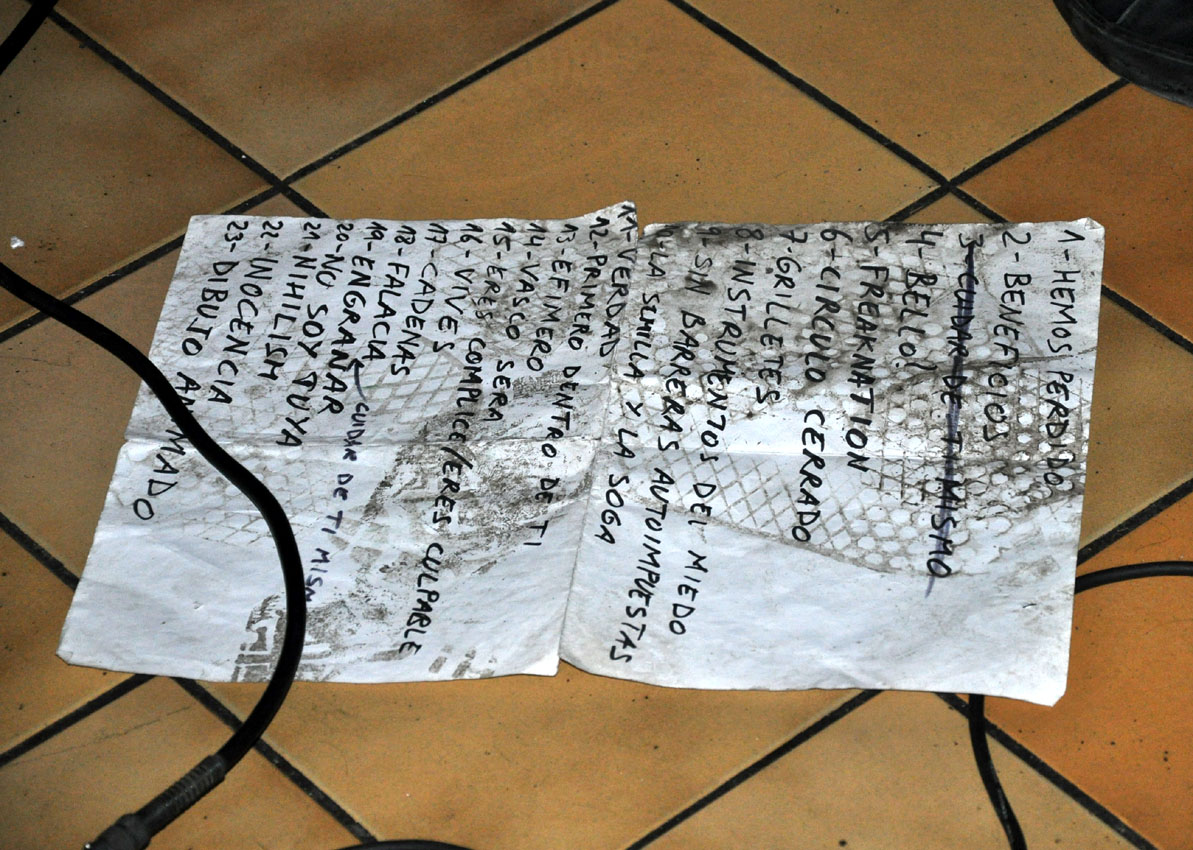 1-HEMOS PERDIDO
2-BENEFICIOS
3-CUIDAR DE TI MISMO
4-BELLO?
5-FREAKNATION
6-CIRCULO CERRADO
7-GRILLETES
8-INSTRUMENTOS DEL MIEDO
9-SIN BARRERAS AUTOIMPUESTAS
10-LA SEMILLA Y LA SOGA
11-VERDAD
12-PRIMERO DENTRO DE TI
13-EFIMERO
14-VASCO SERA
15-ERES COMPLICE/ERES CULPABLE
16-VIVES
17-CADENAS
18-FALACIA
19-ENGRANAR
CUIDAR DE TI MISM
20-NO SOY TUYA
21-NIHILISM
22-INOCENCIA
23-DIBUJO ANIMADO